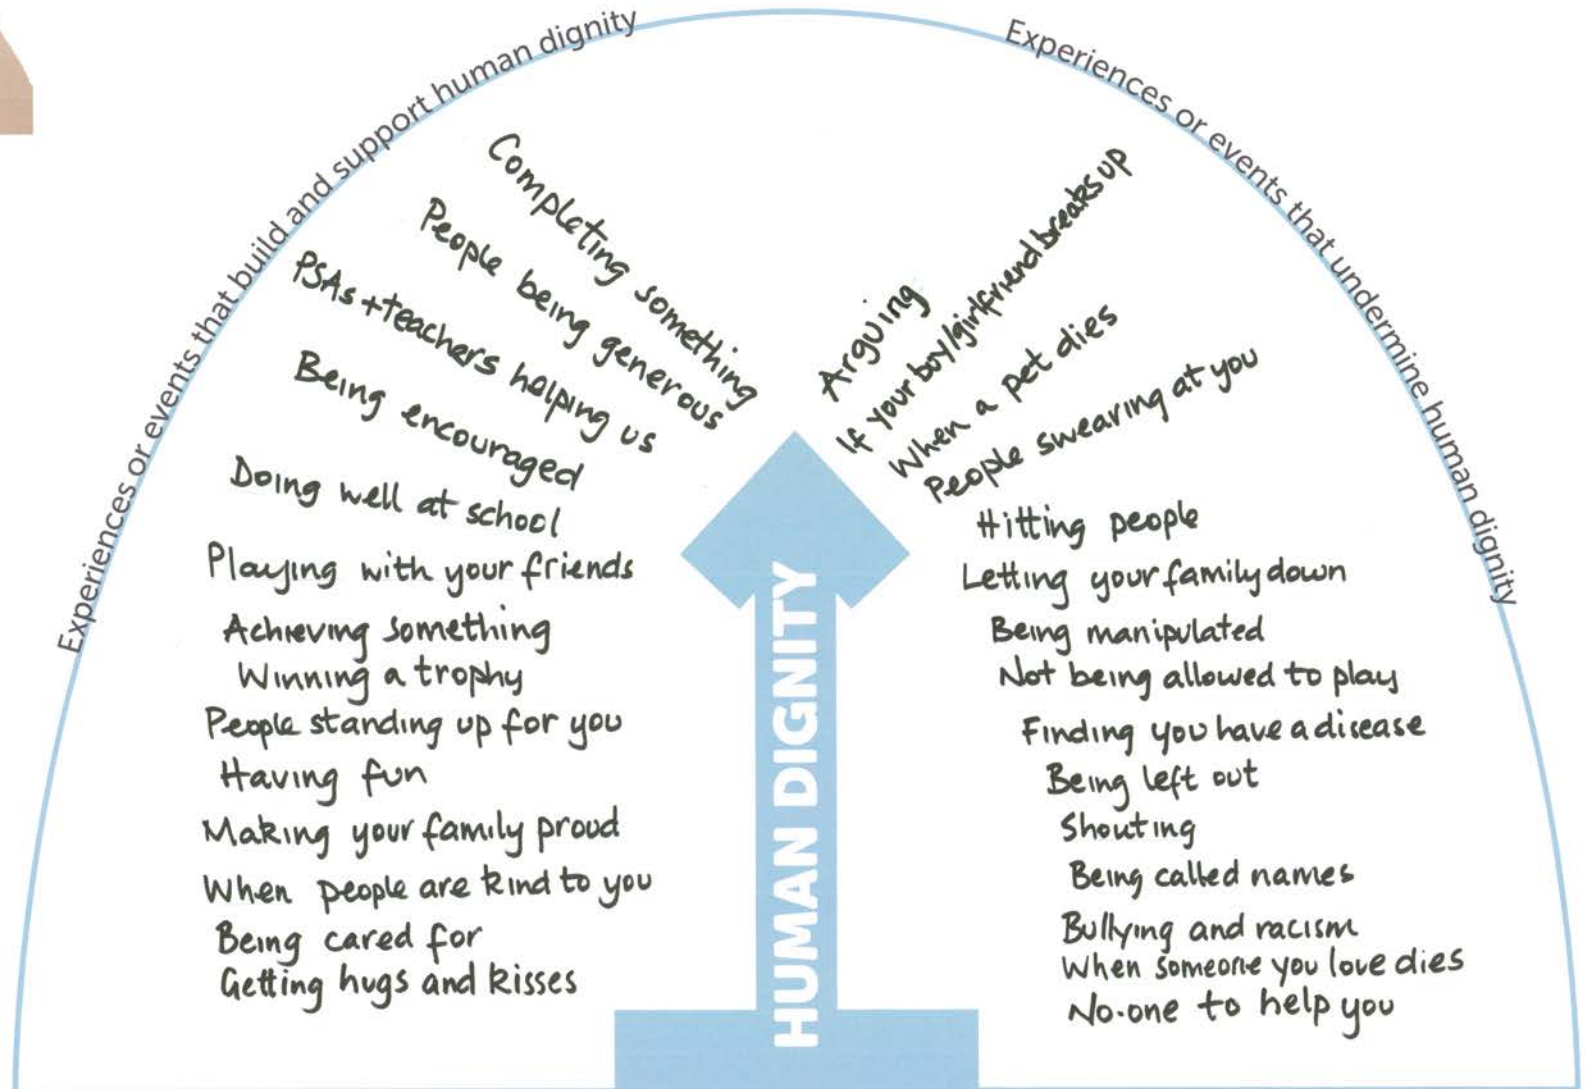 Experiences or events that build and support human dignity
Completing something
People being generous
PSAs + teachers helping us
Being encouraged
Doing well at school
Playing with your friends
Achieving something
Winning a trophy
People standing up for you
Having fun
Making your family proud
When people are kind to you
Being cared for
Getting hugs and kisses
HUMAN DIGNITY
Experiences or events that undermine human dignity
Arguing
If your boy/girlfriend breaks up
When a pet dies
People swearing at you
Hitting people
Letting your family down
Being manipulated
Not being allowed to play
Finding you have a disease
Being left out
Shouting
Being called names
Bullying and racism
When someone you love dies
No-one to help you